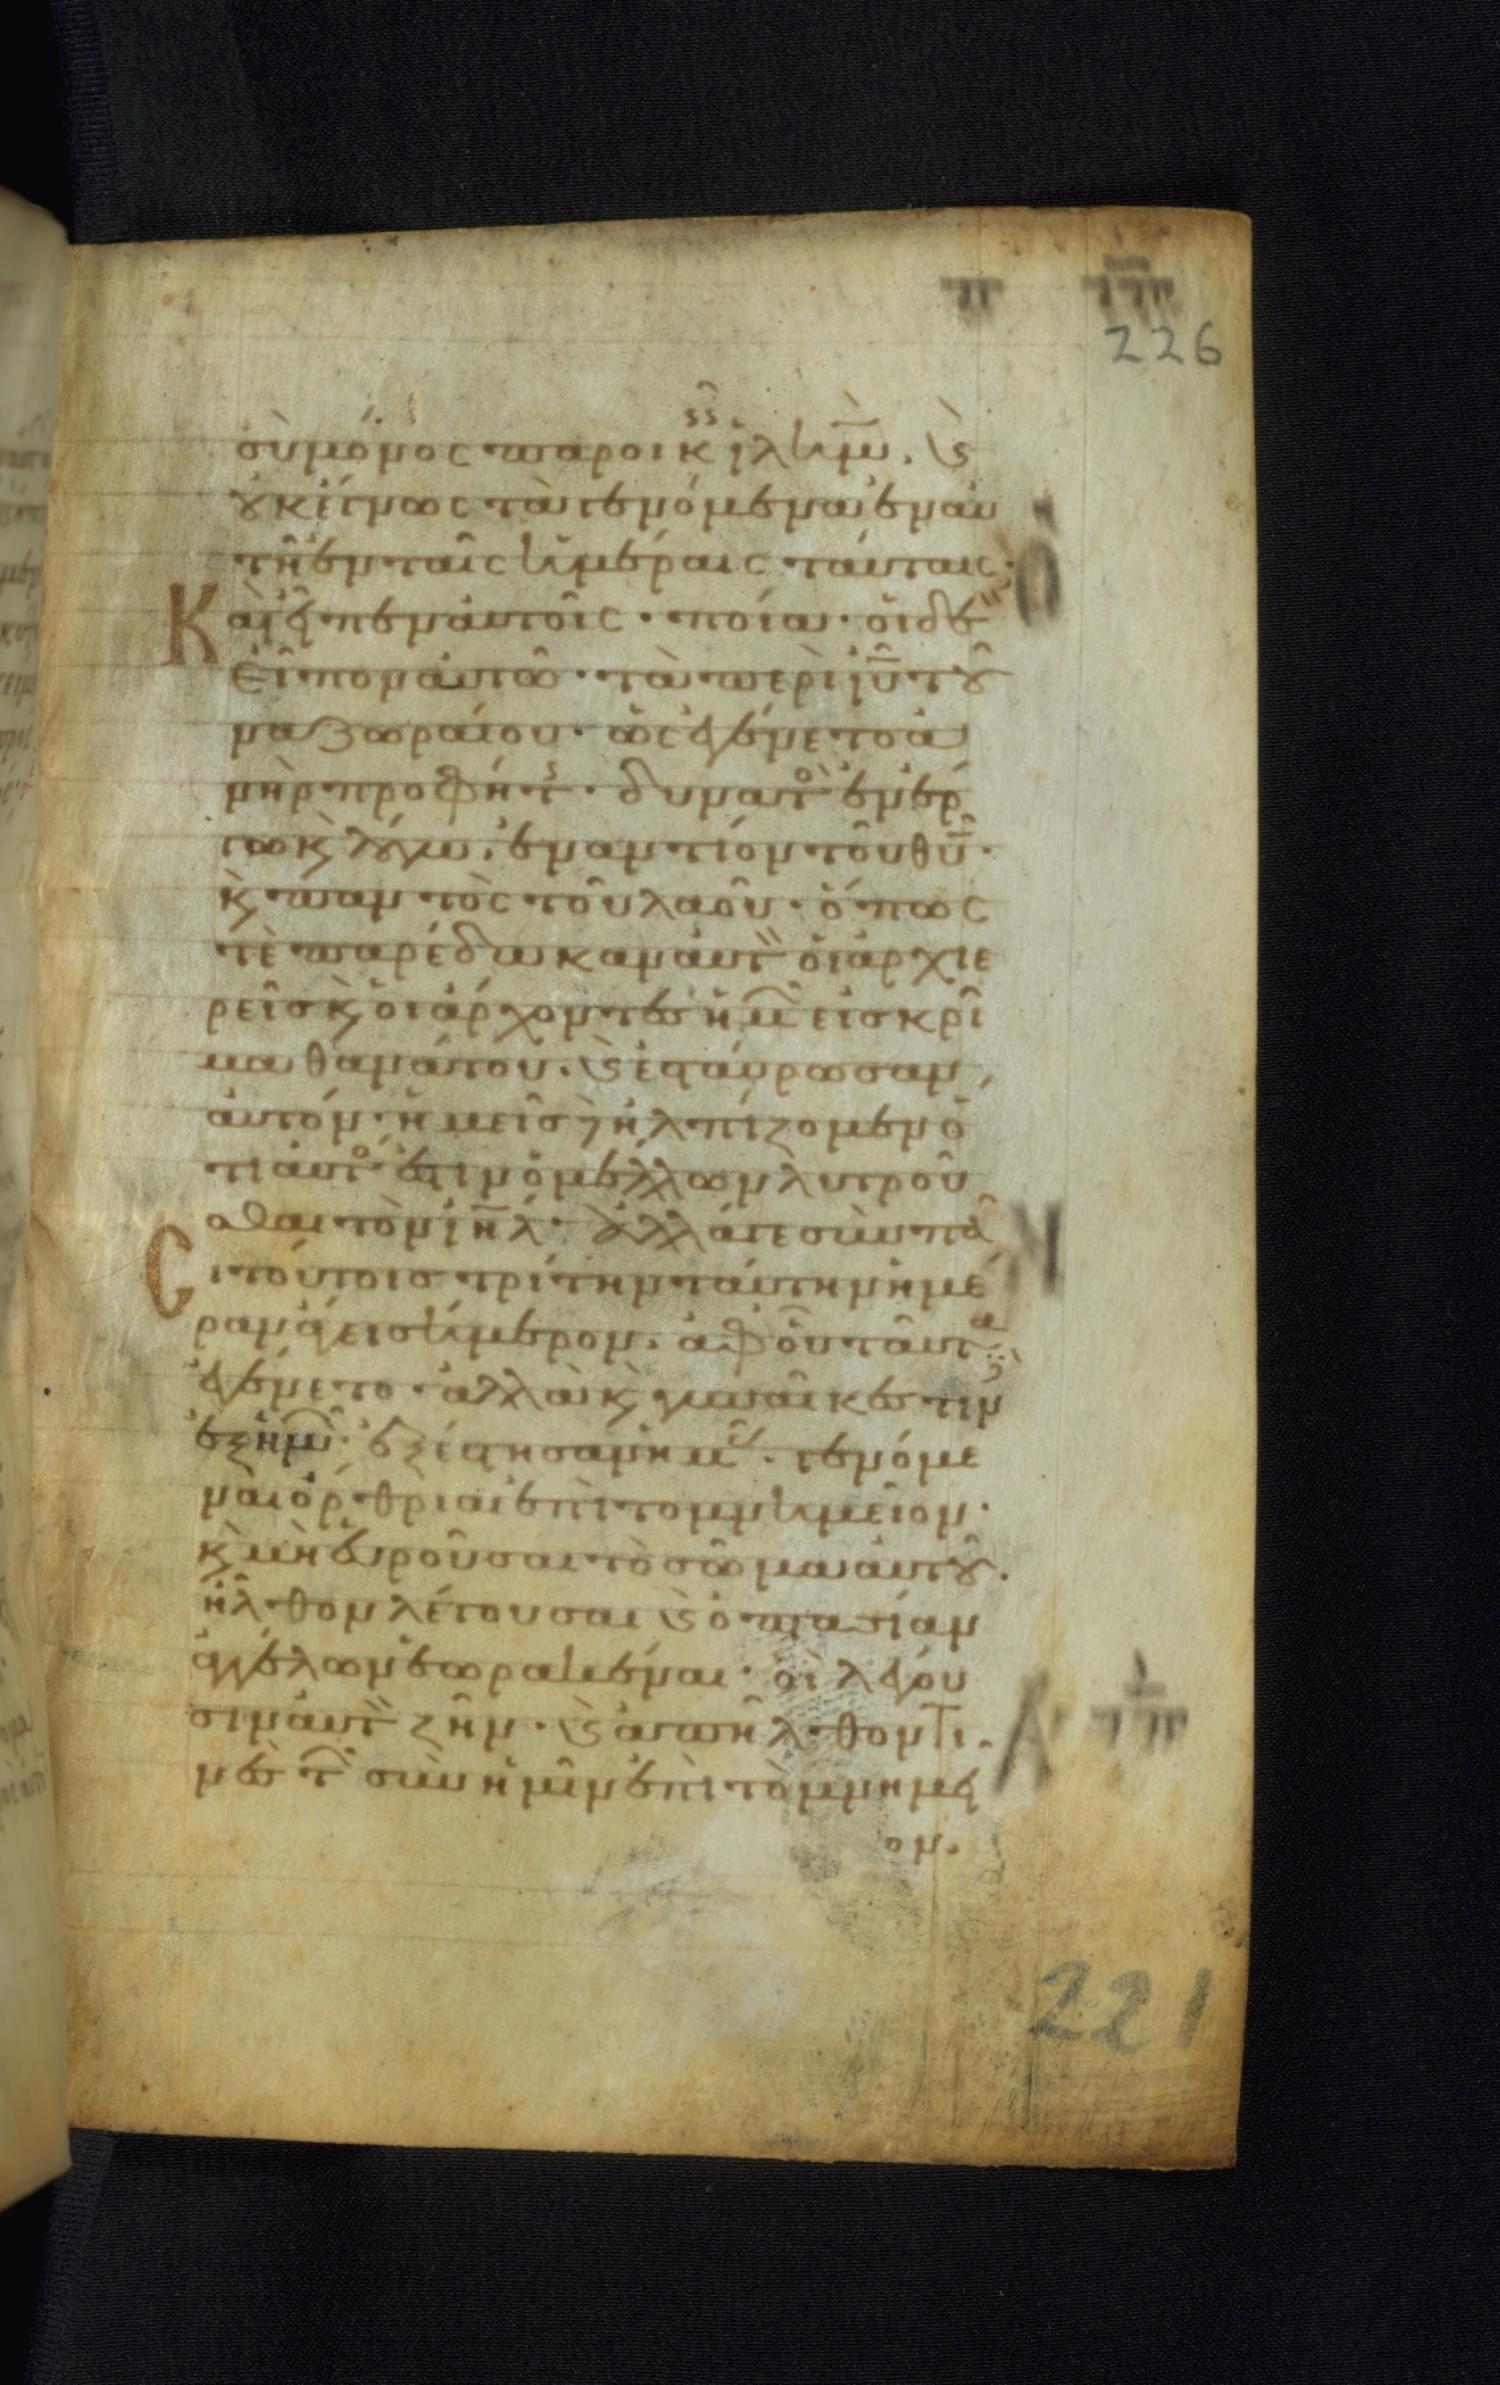 226
σὺ μόνος παροικεῖς ἰλῆμ. καὶ
οὐκ ἔγνως τὰ γενόμενα ἐν αὐ
τῆ ἐν ταῖς ἡμέραις ταύταις·
Καὶ εἶπεν αὐτοῖς· ποῖα· οἱ δὲ
εἶπον αὐτῶ· τὰ περὶ ἰῦ τοῦ
ναζωραίου· ὃς ἐγένετο ἀ
νὴρ προφήτης· δυνατὸς ἐν ἔρ
γω κ λόγω, ἐναντίον τοῦ θῦ·
κ παντὸς τοῦ λαοῦ· ὅπως
τὲ παρέδωκαν αὐτὸν οἱ ἀρχιε
ρεῖς κ οἱ ἄρχοντες ἡμῶν εἰς κρῖ
μα θανάτου. καὶ ἐσταύρωσαν
αὐτόν· ἡμεῖς δὲ ἠλπίζομεν ὅ
τι αὐτός ἐστιν ὁ μέλλων λυτροῦ
σθαι τὸν ἰηλ· ἀλλά γε σὺν πᾶ
σι τούτοις τρίτην ταύτην ἡμέ
ραν ἄγει σήμερον. ἀφ οὗ ταῦτα
ἐγένετο· ἀλλὰ κ γυναῖκες τινὲς
ἐξ ἡμῶν· ἐξέστησαν ἡμᾶς. γενόμε
ναι ὄρθριαι ἐπὶ τὸ μνημεῖον·
κ μὴ εὑροῦσαι τὸ σῶμα αὐτοῦ.
ἦλθον λέγουσαι καὶ ὀπτασίαν
ἀγγέλων ἑωρακέναι· οἳ λέγου
σιν αὐτὸν ζῆν. καὶ ἀπῆλθον τι
νὲς τῶν σὺν ἡμῖν ἐπὶ τὸ μνημεῖ
ον.
221